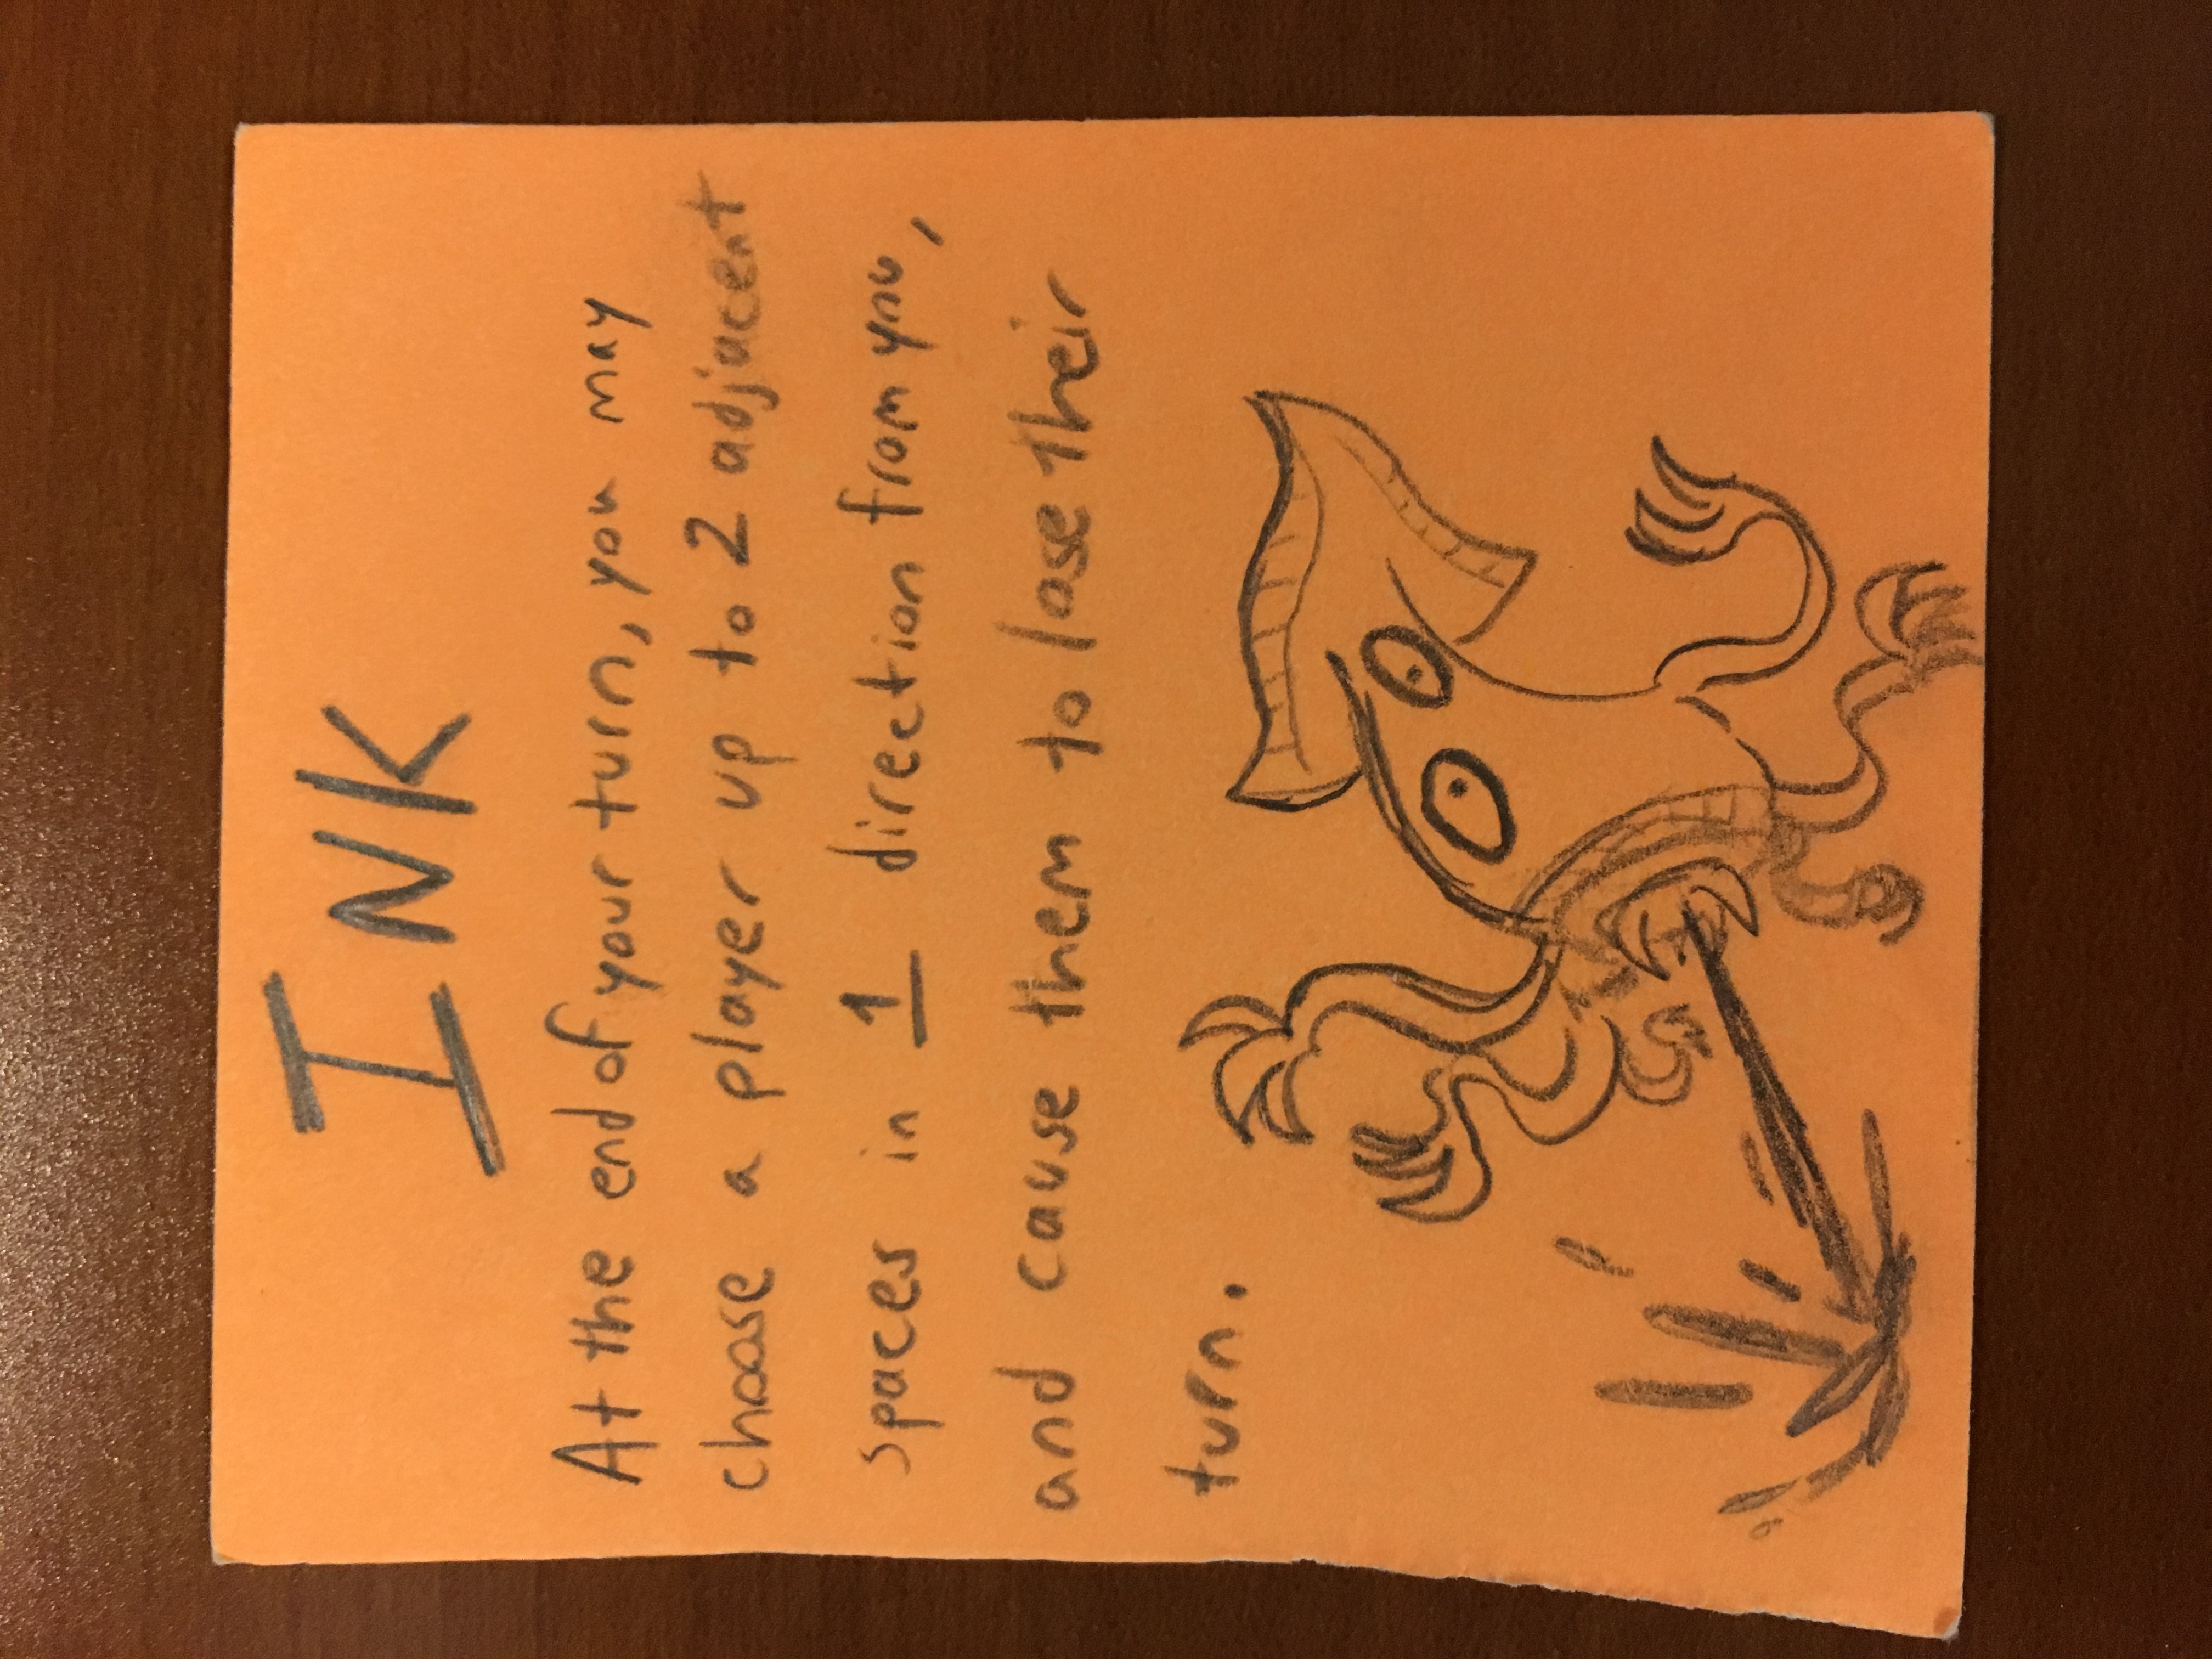 INK
At the end of your turn, you may
choose a player up to 2 adjacent
spaces in 1 direction from you,
and cause them to lose their
turn.